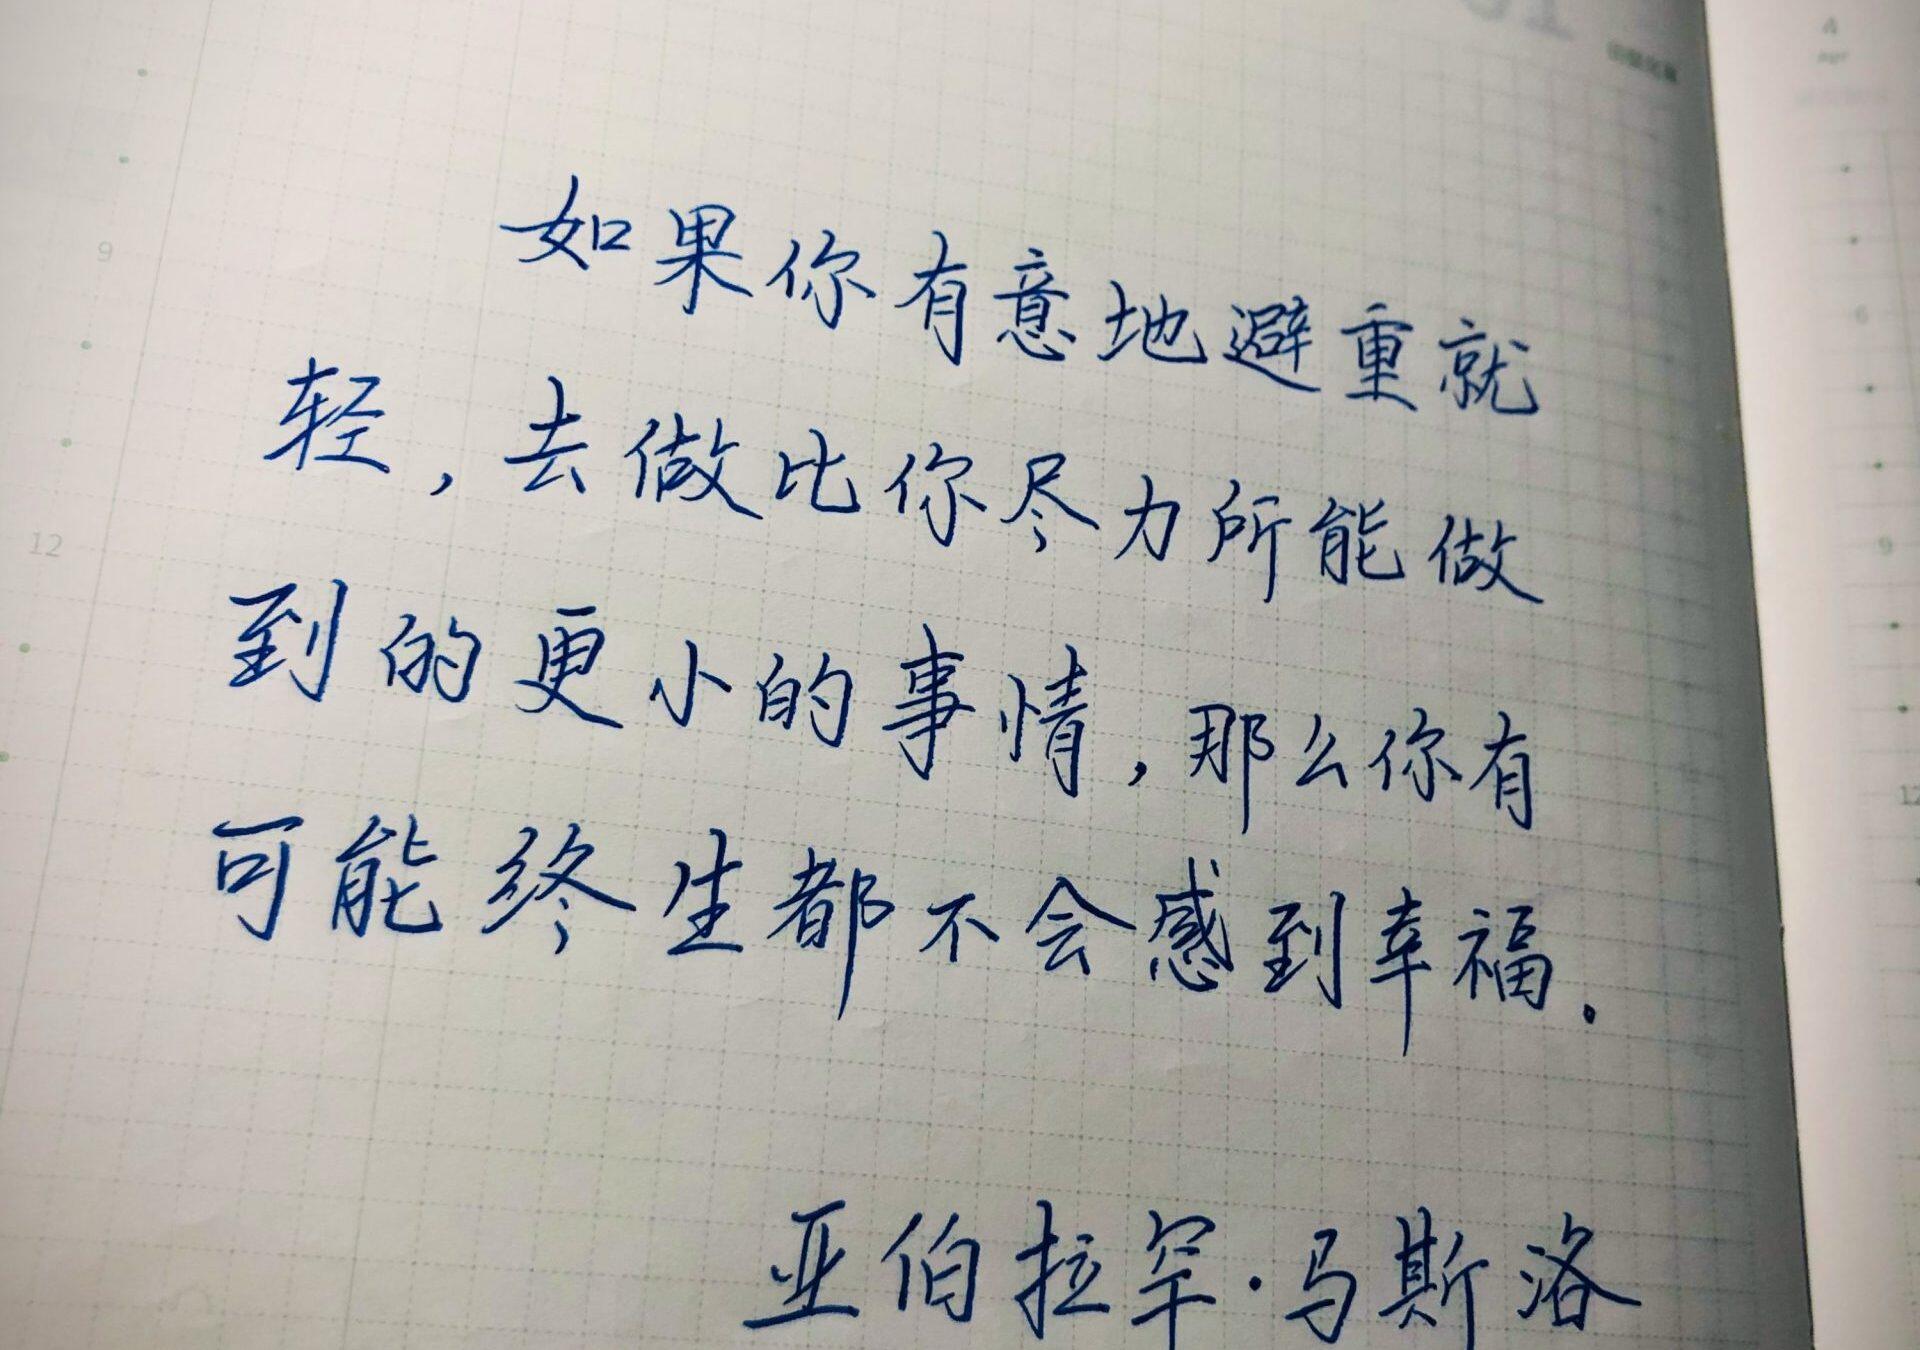 如果你有意地避重就
轻，去做比你尽力所能做
到的更小的事情，那么你有
可能终生都不会感到幸福.
亚伯拉罕·马斯洛
9
12
4
6
9
12